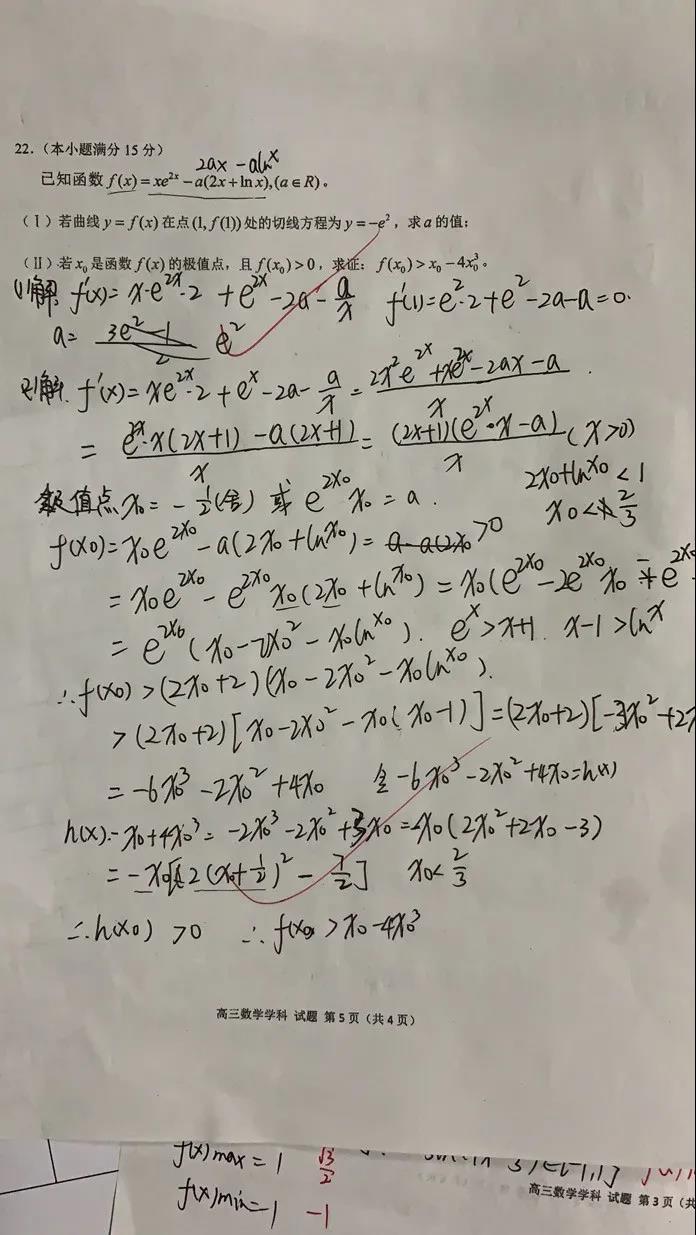 22.（本小题满分 15 分）
2ax - aln^x
已知函数 f(x)=xe^{2x}-a(2x+ln x),(a∈R)。
（Ⅰ）若曲线 y=f(x) 在点 (1, f(1)) 处的切线方程为 y=-e²，求 a 的值；
（Ⅱ）若 x₀ 是函数 f(x) 的极值点，且 f(x₀)>0，求证：f(x₀)>x₀-4x₀³。
(1)解 f'(x)=x·e^{2x}·2+e^{2x}-2a-a/x f'(1)=e²·2+e²-2a-a=0.
a= e²
解. f'(x)=xe^{2x}·2+e^x-2a-a/x=(2x²e^{2x}+xe^{2x}-2ax-a)/x.
=(e^{2x}·x(2x+1)-a(2x+1))/x=((2x+1)(e^{2x}·x-a))/x (x>0)
极值点 x₀=-1/2(舍) 或 e^{2x₀}x₀=a. 2x₀+ln^{x₀}<1
x₀<2/3
f(x₀)=x₀e^{2x₀}-a(2x₀+ln^{x₀})= >0
=x₀e^{2x₀}-e^{2x₀}x₀(2x₀+ln^{x₀})=x₀(e^{2x₀}-2e^{2x₀}x₀-e^{2x₀}
=e^{2x₀}(x₀-2x₀²-x₀ln^{x₀}). e^x>x+1. x-1>ln^x
∴f(x₀)>(2x₀+2)(x₀-2x₀²-x₀ln^{x₀}).
>(2x₀+2)[x₀-2x₀²-x₀(x₀-1)]=(2x₀+2)[-3x₀²+2x
=-6x₀³-2x₀²+4x₀ 令-6x₀³-2x₀²+4x₀=h(x)
h(x)-x₀+4x₀³=-2x₀³-2x₀²+3x₀=-x₀(2x₀²+2x₀-3)
=-x₀[2(x₀+1/2)²-7/2] x₀<2/3
∴h(x₀)>0 ∴f(x₀)>x₀-4x₀³
高三数学学科 试题 第 5 页（共 4 页）
f(x)max=1 √3/2
f(x)min=-1 -1
高三数学学科 试题 第 3 页（共